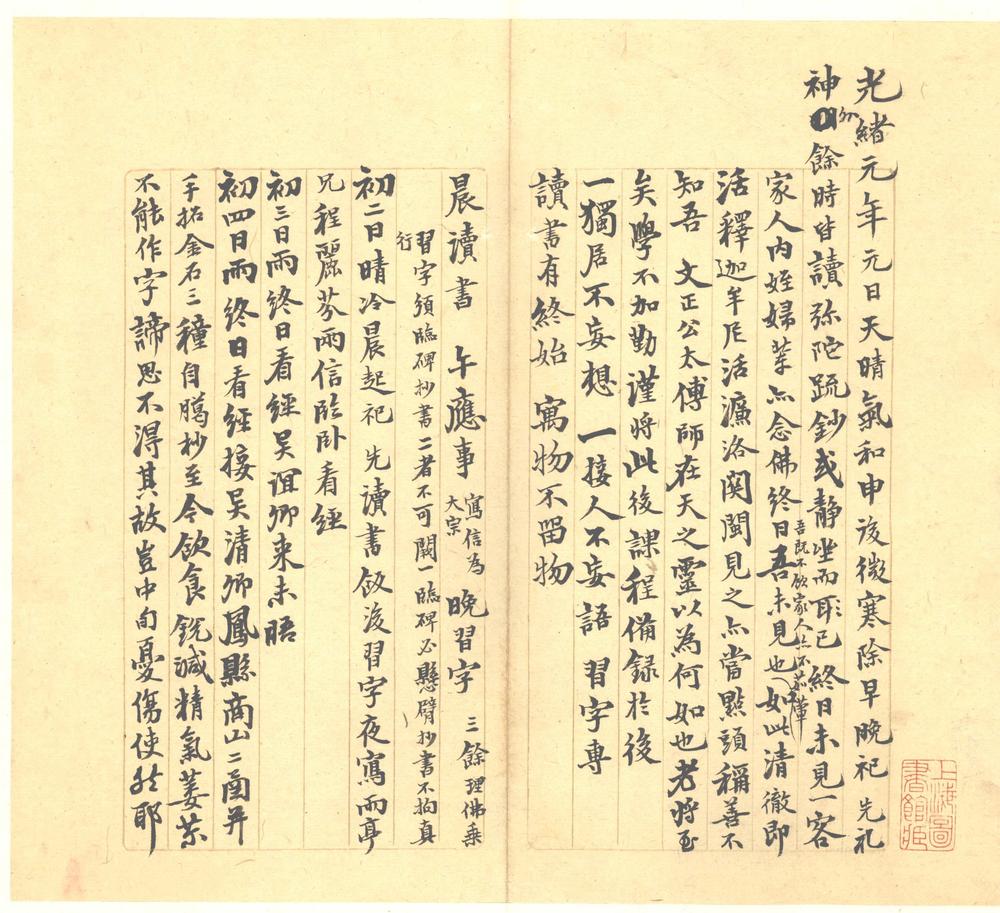 光緒元年元日天晴氣和申後微寒除早晚祀 先礼
神外餘時皆讀弥陀疏鈔或静坐而耴已終日未見一客
家人内姪婦輩亦念佛終日吾未見也如此清徹即
吾既不飲家人亦不茹葷
活釋迦牟尼活濂洛関閩見之亦當點頭稱善不
知吾 文正公太傅師在天之靈以為何如也老將至
矣學不加勤謹將此後課程備録於後
一獨居不妄想 一接人不妄語 習字專
讀書有終始 寓物不畱物
晨讀書 午應事 寫信為大宗 晚習字 三餘理佛乗
習字須臨碑抄書二者不可闕一臨碑必懸臂抄書不拘真
行
初二日晴冷晨起祀 先讀書飯後習字夜寫雨亭
兄程麗芬兩信臨卧看經
初三日雨終日看經吴誼卿来未晤
初四日雨終日看經接吴清卿鳳縣商山二圅并
手拓金石三種自臈杪至今飲食銳減精氣萎苶
不能作字諦思不得其故豈中向憂傷使然耶
上海圖書館藏